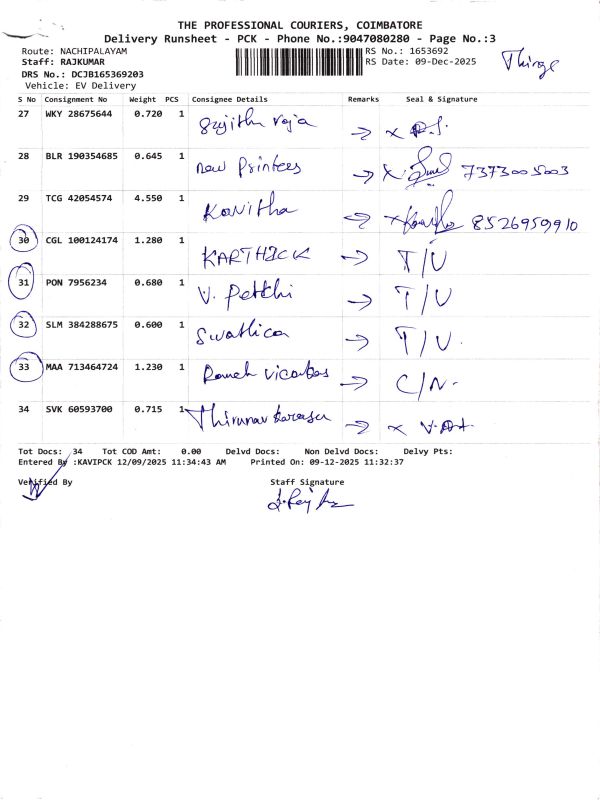 THE PROFESSIONAL COURIERS, COIMBATORE
Delivery Runsheet - PCK - Phone No.:9047080280 - Page No.:3
Route: NACHIPALAYAM RS No.: 1653692
Staff: RAJKUMAR RS Date: 09-Dec-2025
DRS No.: DCJB165369203
Vehicle: EV Delivery
S No Consignment No Weight PCS Consignee Details Remarks Seal & Signature
27 WKY 28675644 0.720 1
28 BLR 190354685 0.645 1 new Printees → x 7373005003
29 TCG 42054574 4.550 1 Kavitha → x 8526959910
30 CGL 100124174 1.280 1 KARTHICK → T/U
31 PON 7956234 0.680 1 V. Petchi → T/U
32 SLM 384288675 0.600 1 → T/U.
33 MAA 713464724 1.230 1 → C/N.
34 SVK 60593700 0.715 1 → x
Tot Docs: 34 Tot COD Amt: 0.00 Delvd Docs: Non Delvd Docs: Delvy Pts:
Entered By :KAVIPCK 12/09/2025 11:34:43 AM Printed On: 09-12-2025 11:32:37
Verified By Staff Signature